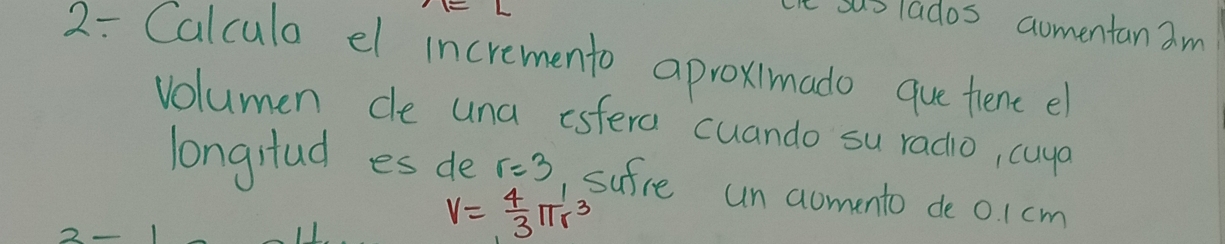 de sus lados aumentan 2m
2.- Calcula el incremento aproximado que tiene el
volumen de una esfera cuando su radio, cuya
longitud es de r=3, sufre un aumento de 0.1 cm
V= 4/3 πr³